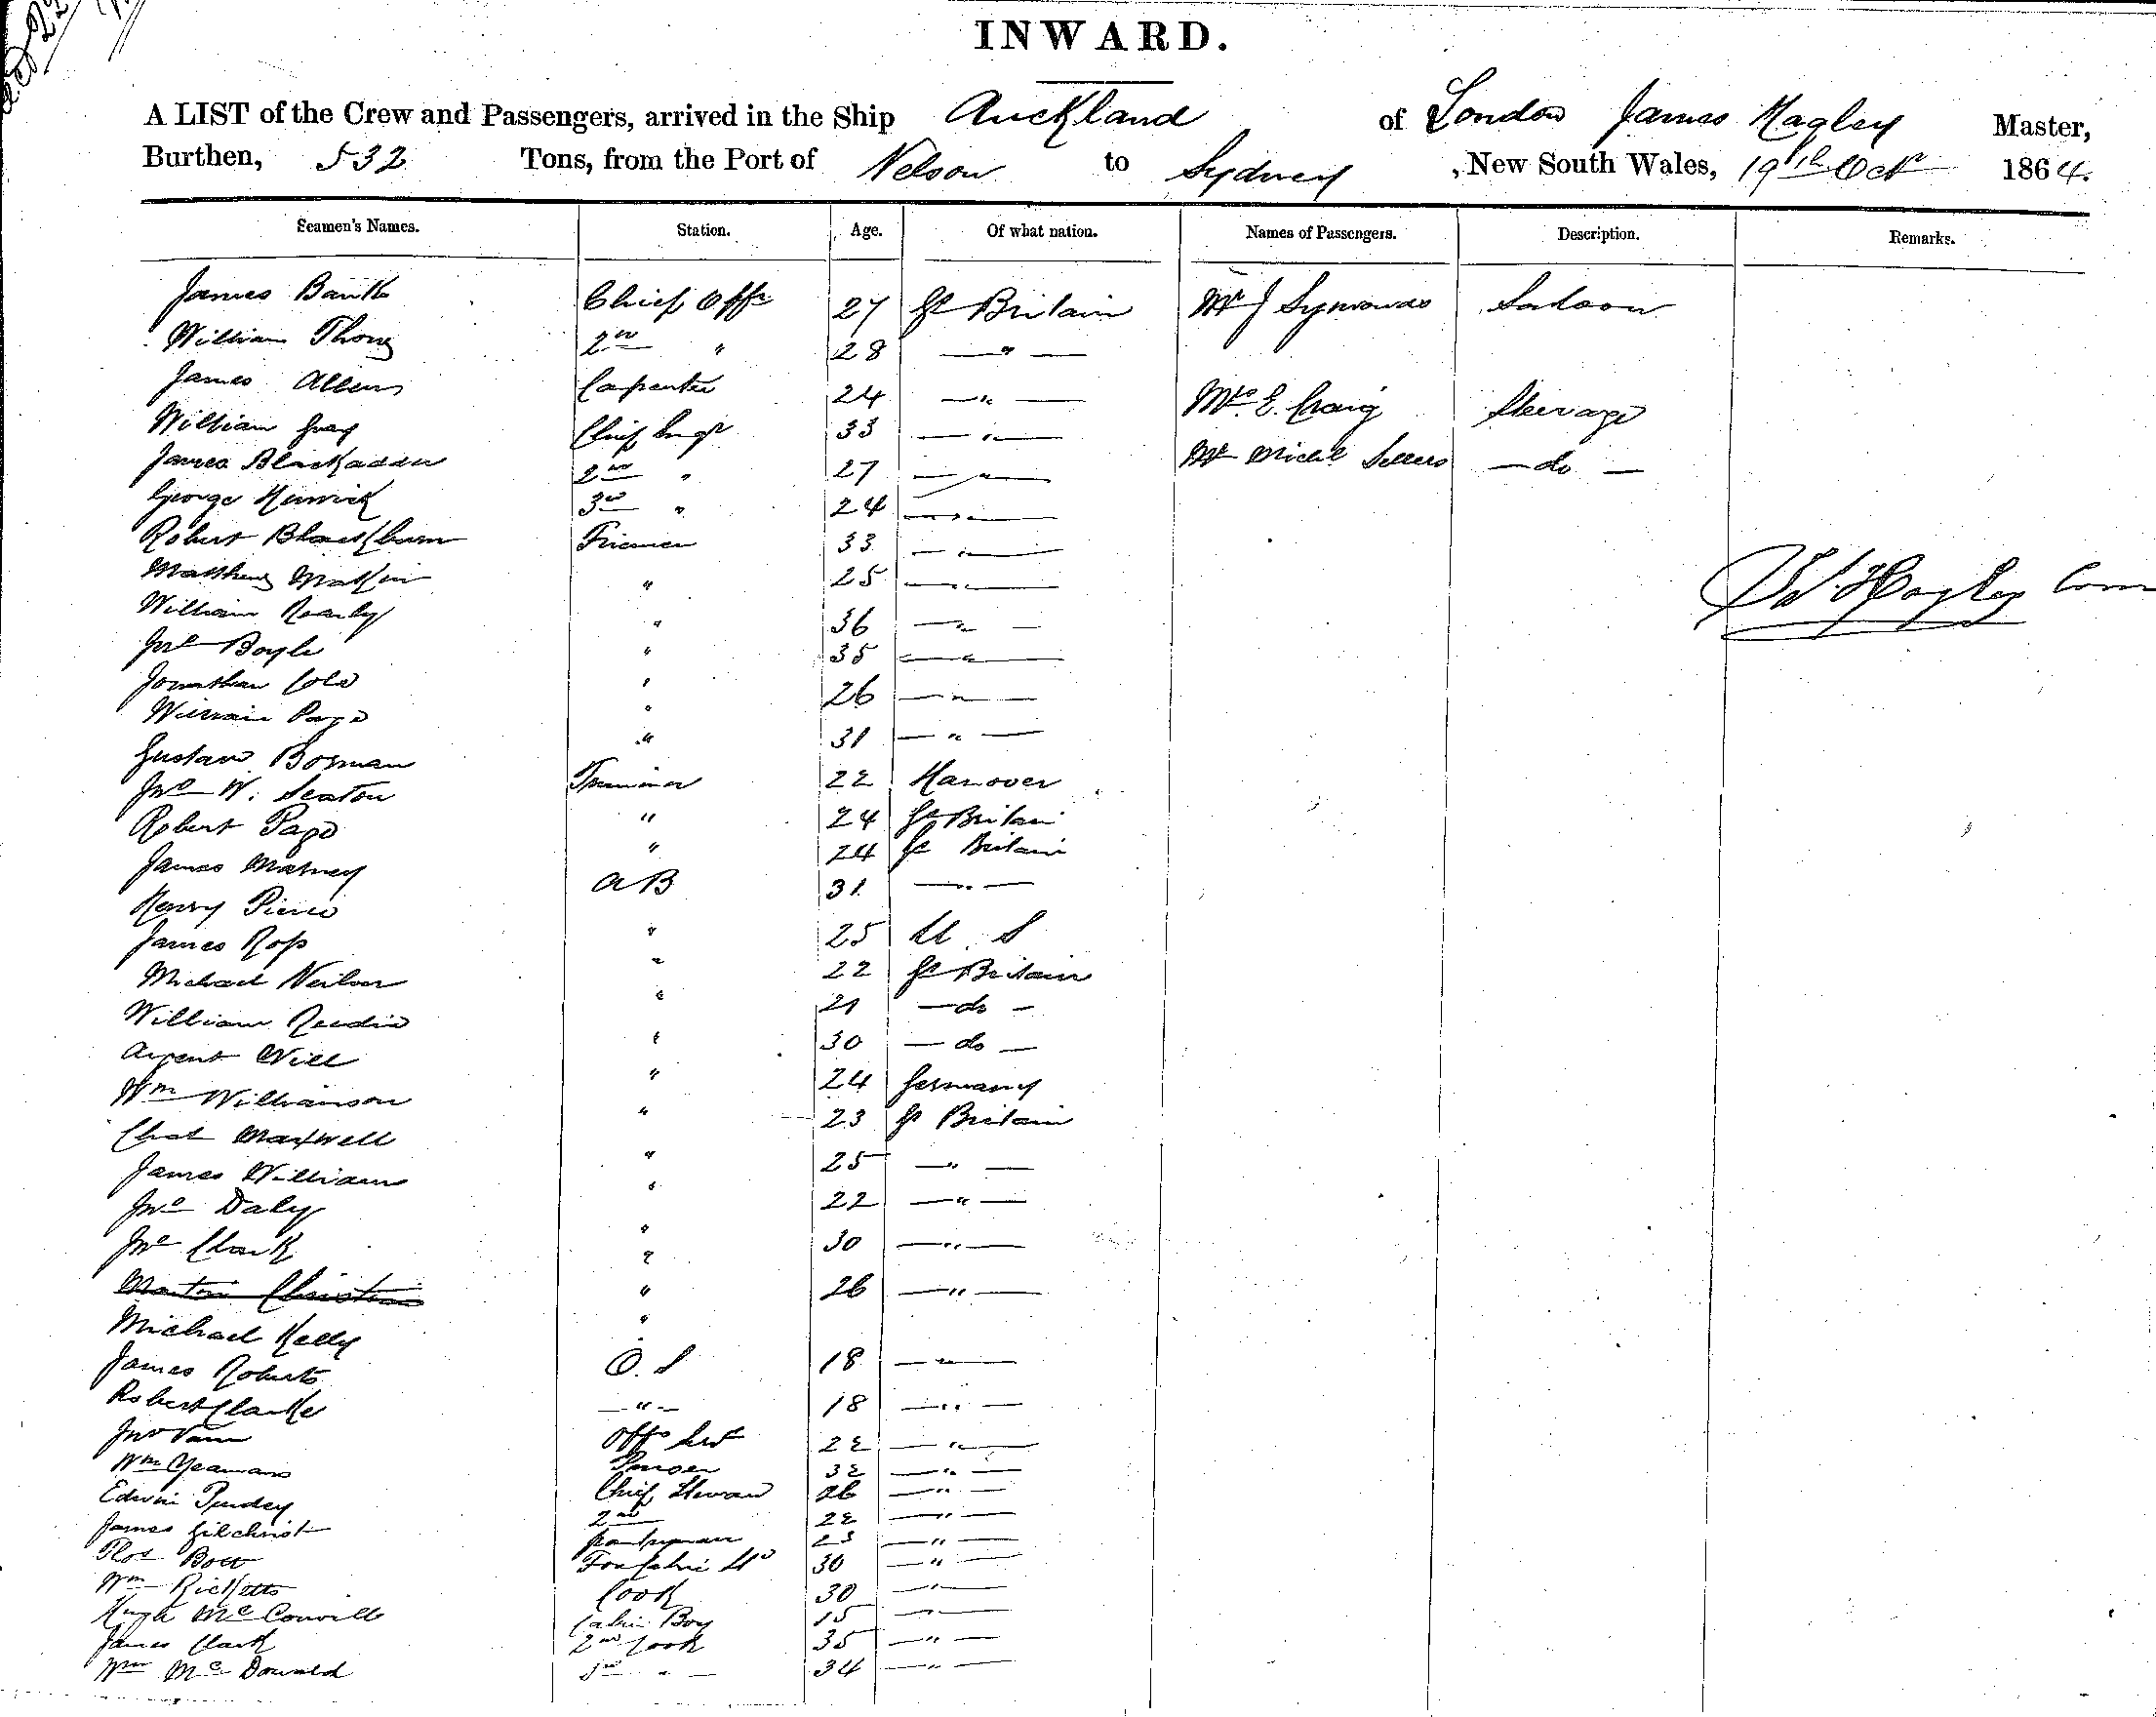 INWARD.
A LIST of the Crew and Passengers, arrived in the Ship Auckland of London James Hagley Master,
Burthen, 532 Tons, from the Port of Nelson to Sydney, New South Wales, 19th Octr 1864.
Seamen's Names. Station. Age. Of what nation. Names of Passengers. Description. Remarks.
James Banks Chief Offr 27 Gt Britain Mr J Symonds Saloon
William Thong 2nd " 28 — " —
James Allen Carpenter 24 — " — Mrs. E. Craig Steerage
William Gray Chief Engr 33 — " —
James Blackadder 2nd " 27 — " — Mr Michl Sellers — do —
George Herrick 3rd " 24 — " —
Robert Blackburn Fireman 33 — " —
Matthew Makin " 25 — " —
William " 36 — " —
Jno Boyle " 35 — " —
Jonathan Cole " 26 — " —
William Page " 31 — " —
Gustave Borman Trimmer 22 Hanover
Jno W. Seaton " 24 Gt Britain
Robert Page " 24 Gt Britain
James AB 31 — " —
Henry Pierce " 25 U. S
James Ross " 22 Gt Britain
Michael Neilson " 21 — do —
William Reedie " 30 — do —
Argent Will " 24 Germany
Wm Williamson " 23 Gt Britain
Chas Maxwell " 25 — " —
James Williams " 22 — " —
Jno Daly " 30 — " —
Jno Clark " 26 — " —
Martin Christian "
Michael Kelly "
James Roberts O. S 18 — " —
Robert Clarke — " — 18 — " —
Jno Offrs Servt 22 — " —
Wm Yeamans Purser 32 — " —
Edwin Purdey Chief Steward 26 — " —
James Gilchrist 2nd 22 — " —
Thos Bott pantryman 23 — " —
Wm Ricketts Fore Cabin Std 30 — " —
Hugh McConville Cook 30 — " —
James Clark Cabin Boy 15 — " —
Wm McDonald 2nd Cook 35 — " —
3rd " — 34 — " —
Js. Hagley Com